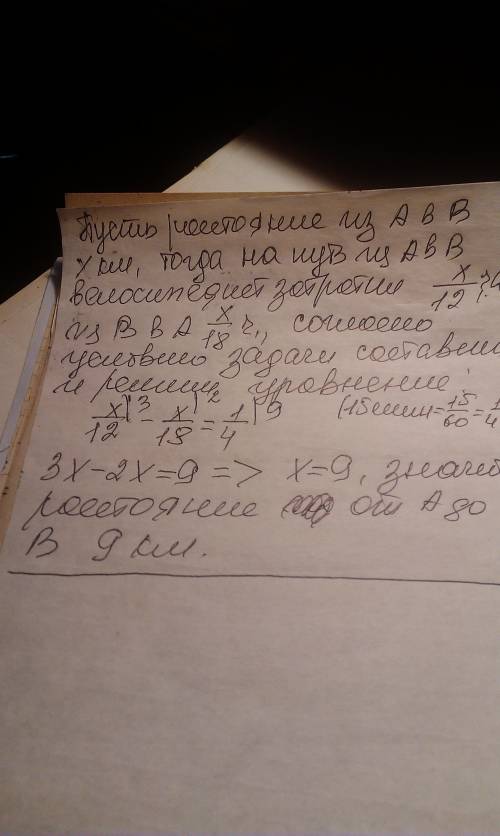 Пусть расстояние из А в В
х км, тогда на путь из А в В
велосипедист затратил x/12 ч,
из В в А x/18 ч., согласно
условию задачи составим
и решим уравнение:
x/12 |3 - x/18 |2 = 1/4 |9 (15 мин = 15/60 = 1/4
3x - 2x = 9 => x = 9, значит
расстояние от А до
В 9 км.